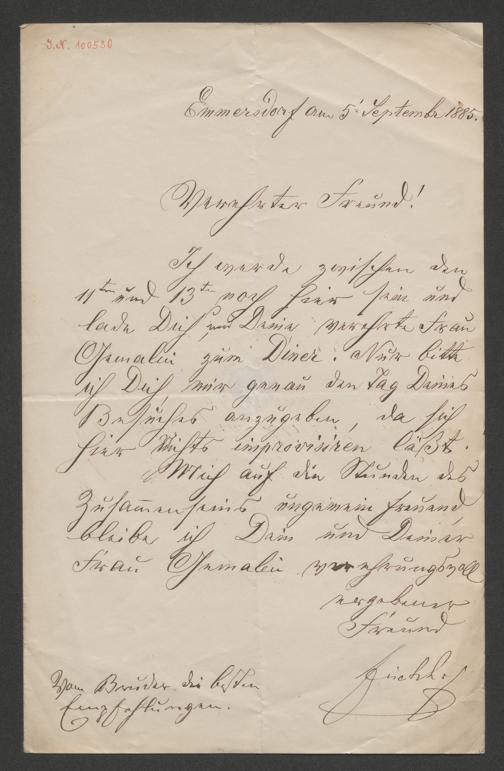 I.N. 100530
Emmersdorf am 5t September 1885.
Verehrter Freund!
Ich werde zwischen den
11ten und 13ten noch hier sein und
lade Dich und Deine verehrte Frau
Gemalin zum Diner. Nur bitte
ich Dich, mir genau den Tag Deines
Besuches anzugeben, da sich
hier Nichts improvisiren läßt.
Mich auf die Stunden des
Zusammenseins ungemein freuend,
bleibe ich Dein und Deiner
Frau Gemalin verehrungsvoll
ergebener
Freund
Vom Bruder die besten
Empfehlungen.